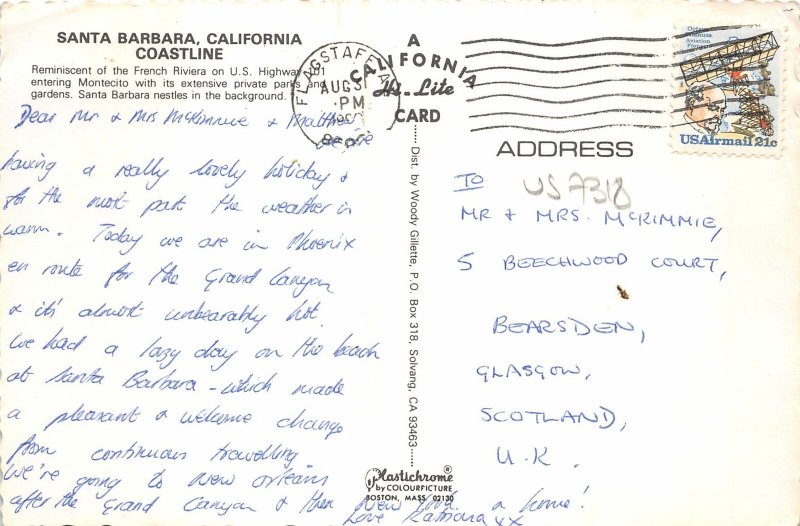 SANTA BARBARA, CALIFORNIA
COASTLINE
Reminiscent of the French Riviera on U.S. Highway 101
entering Montecito with its extensive private parks and
gardens. Santa Barbara nestles in the background.
Dear Mr & Mrs McKimmie &
We are
having a really lovely holiday &
for the most part the weather is
warm. Today we are in Phoenix
en route for the Grand Canyon
& it's almost unbearably hot.
We had a lazy day on the beach
at Santa Barbara - which made
a pleasant & welcome change
from continuous travelling
We're going to New Orleans
after the Grand Canyon & then New York & home!
Love Katriona xx
A
CALIFORNIA
Hi-Lite
CARD
FLAGSTAFF AZ
AUG 31
PM
Dist. by Woody Gillette, P.O. Box 318, Solvang, CA 93463
Plastichrome®
by COLOURPICTURE
BOSTON, MASS. 02130
Octave
Chanute
Aviation
Pioneer
USAirmail 21c
ADDRESS
US 7318
TO
MR & MRS. MCKIMMIE,
5 BEECHWOOD COURT,
BEARSDEN,
GLASGOW,
SCOTLAND,
U.K.